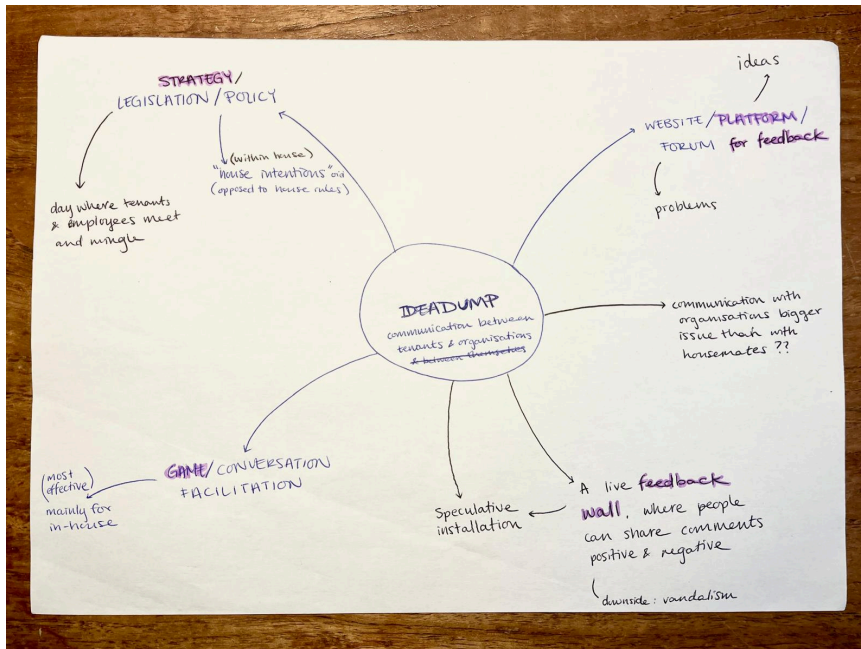 STRATEGY/
LEGISLATION/POLICY
(within house)
"house intentions"
(opposed to house rules)
day where tenants
& employees meet
and mingle
ideas
WEBSITE/PLATFORM/
FORUM for feedback
problems
IDEADUMP
communication between
tenants & organisations
& between themselves
communication with
organisations bigger
issue than with
housemates ??
GAME/CONVERSATION
FACILITATION
(most
effective)
mainly for
in-house
Speculative
installation
A live feedback
wall, where people
can share comments
positive & negative
downside: vandalism